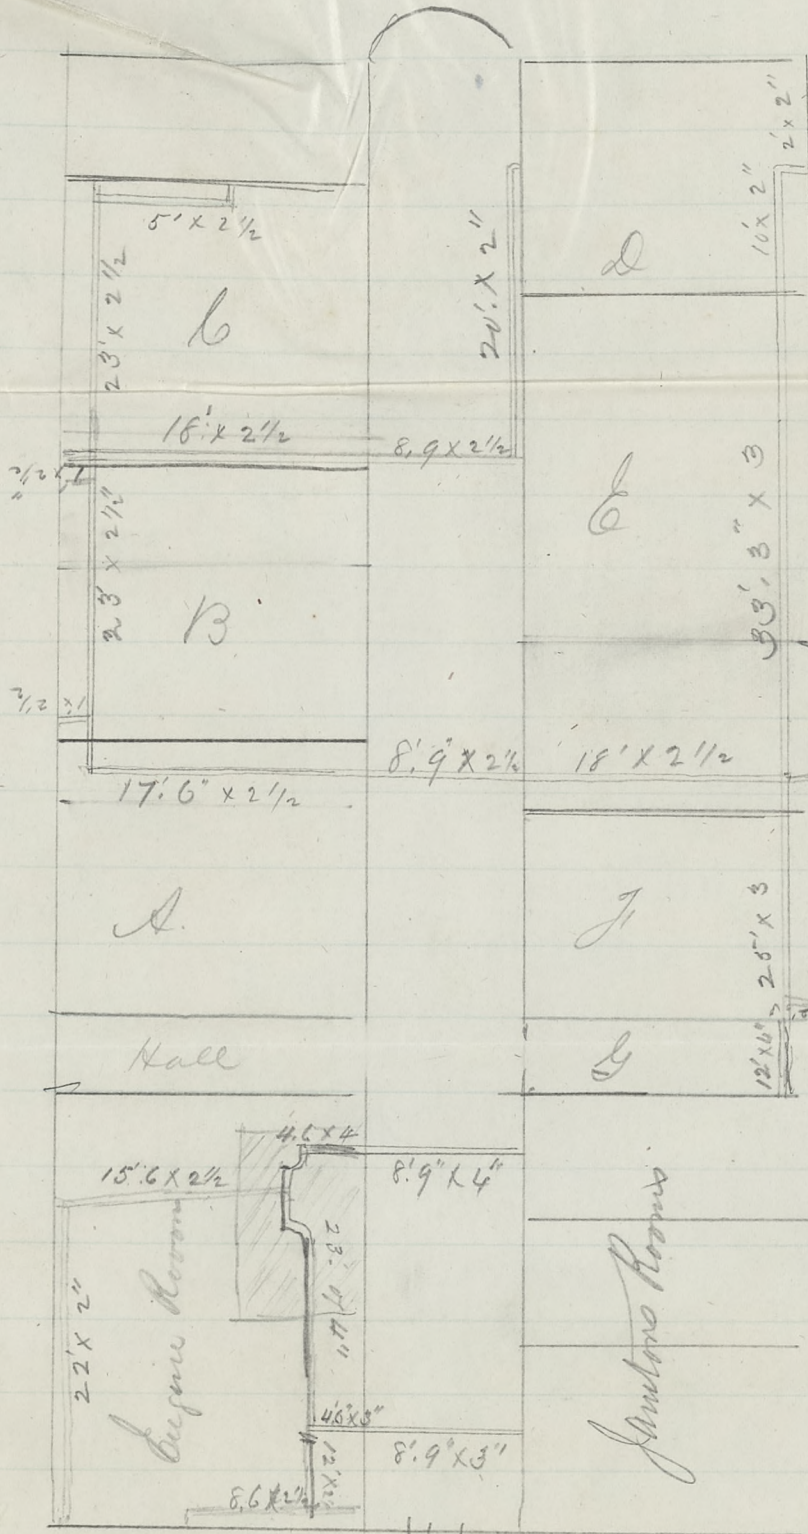 2' x 2"
10' x 2"
5' x 2 1/2
D
20'. x 2"
23' x 2 1/2
C
18' x 2 1/2
8,9 x 2 1/2
E
33'. 3" x 3
1' x 2 1/2"
23' x 2 1/2"
B
1' x 2 1/2
8'. 9" x 2 1/2
18' x 2 1/2
17'. 6" x 2 1/2
A.
F
25' x 3
Hall
G
12' x 4"
4.6 x 4
15'.6 x 2 1/2
8'. 9" x 4"
22' x 2"
Engine Room
Janitors Rooms
4'6" x 3"
8'. 9" x 3"
12' x 2"
8,6 x 2 1/2